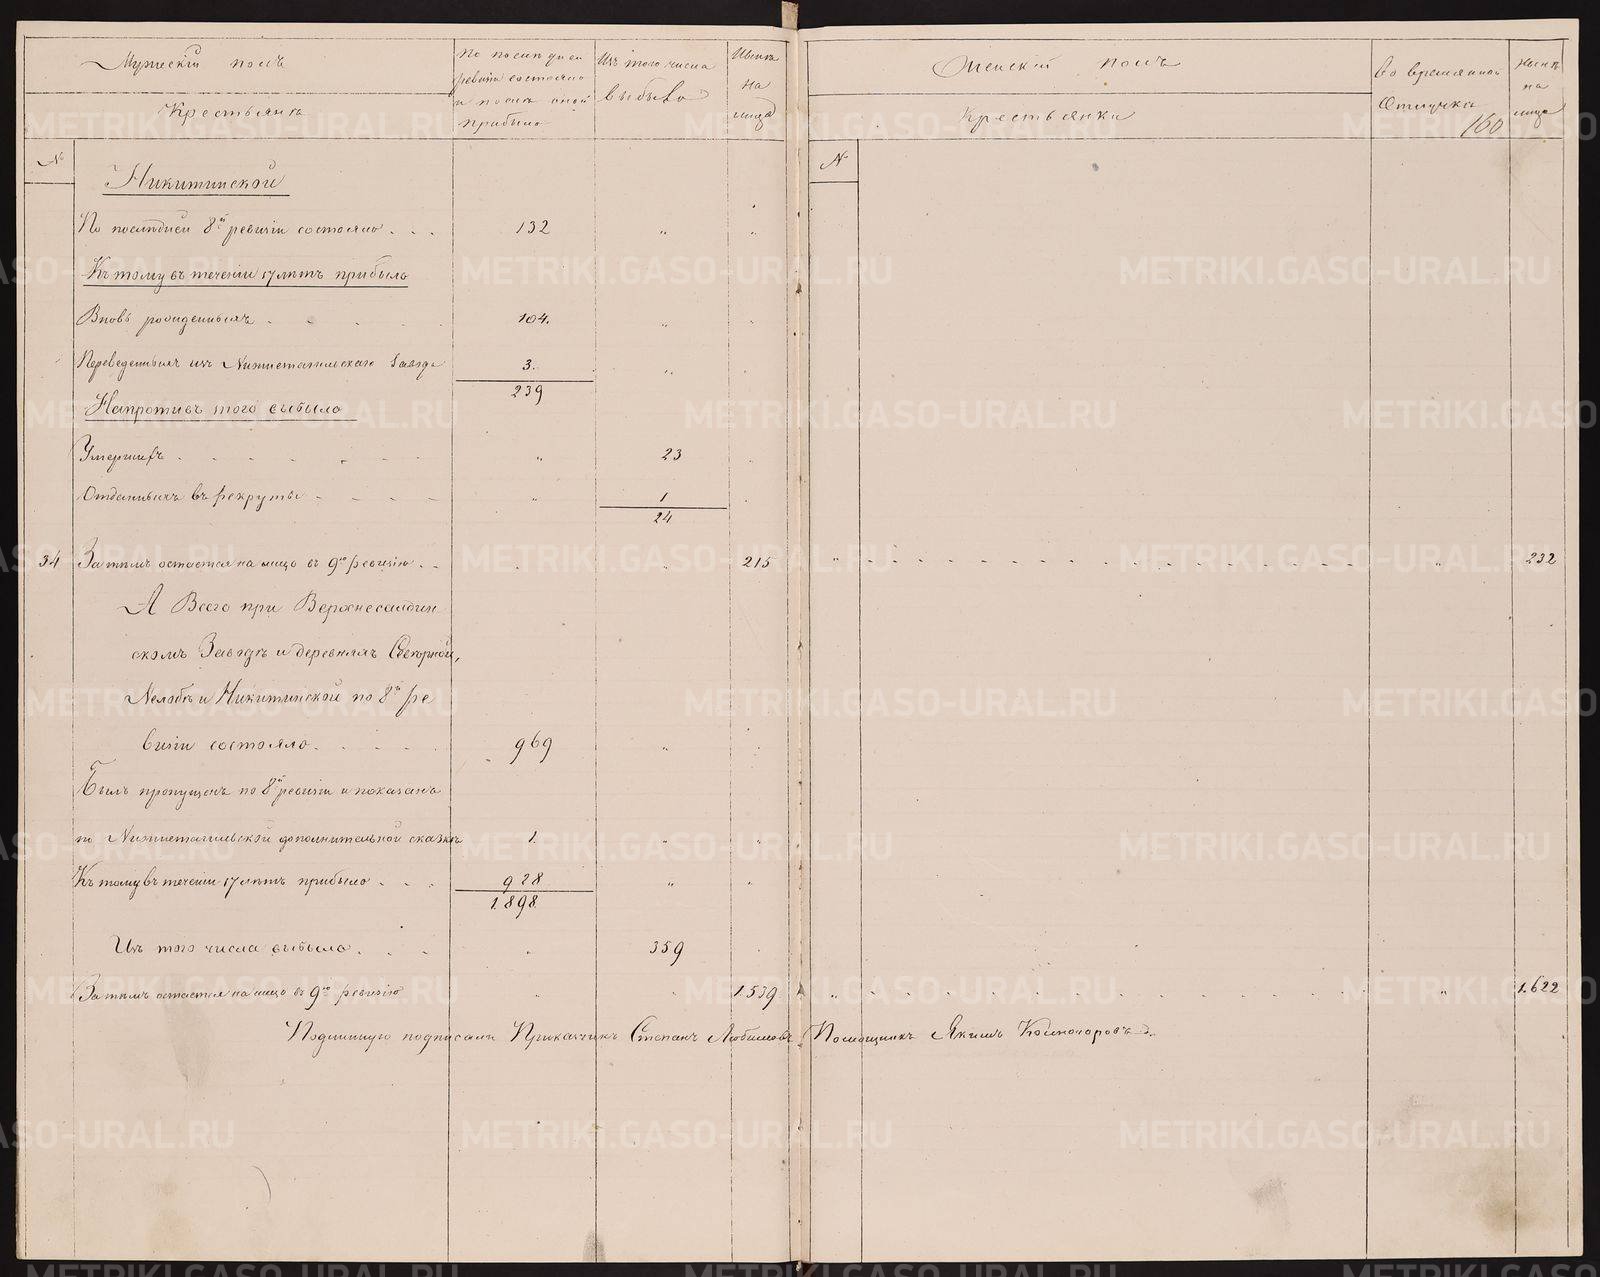 Мужескій полъ
По последней ревизіи состояло и после оной прибыло
Изъ того числа выбыло
Ныне на лицо
Крестьяне
№
Никитинской
По последней 8й ревизіи состояло . . . 132 „ „
Къ тому въ теченіи 17 летъ прибыло
Вновь рожденныхъ . . . . . 104. „
Переведенныхъ изъ Нижнетагильскаго Завода 3. „
239
Напротивъ того выбыло
Умершихъ . . . . . . „ 23
Отданныхъ въ рекруты . . . . „ 1
24
34 За темъ остается на лицо въ 9ю ревизію . . 215
А Всего при Верхнесалдин
скомъ Заводе и деревняхъ Северной,
Нелобе и Никитинской по 8й ре
визіи состояло . . . . . 969 „
Былъ пропущенъ по 8й ревизіи и показанъ
по Нижнетагильской дополнительной сказке 1. „ „
Къ тому въ теченіи 17 летъ прибыло . . . 928 „ „
1.898
Изъ того числа выбыло . . . 359
За темъ остается на лицо въ 9ю ревизію „ 1.539
Женскій полъ
Во временной отлучке
Ныне на лицо
Крестьянки
160
№
„ . . . . . . . . . . . . . . . „ 232
„ . . . . . . . . . . . . . . . „ 1.622
Подлинную подписали Прикащикъ Степанъ Любимовъ Помощникъ Якимъ
METRIKI.GASO-URAL.RU